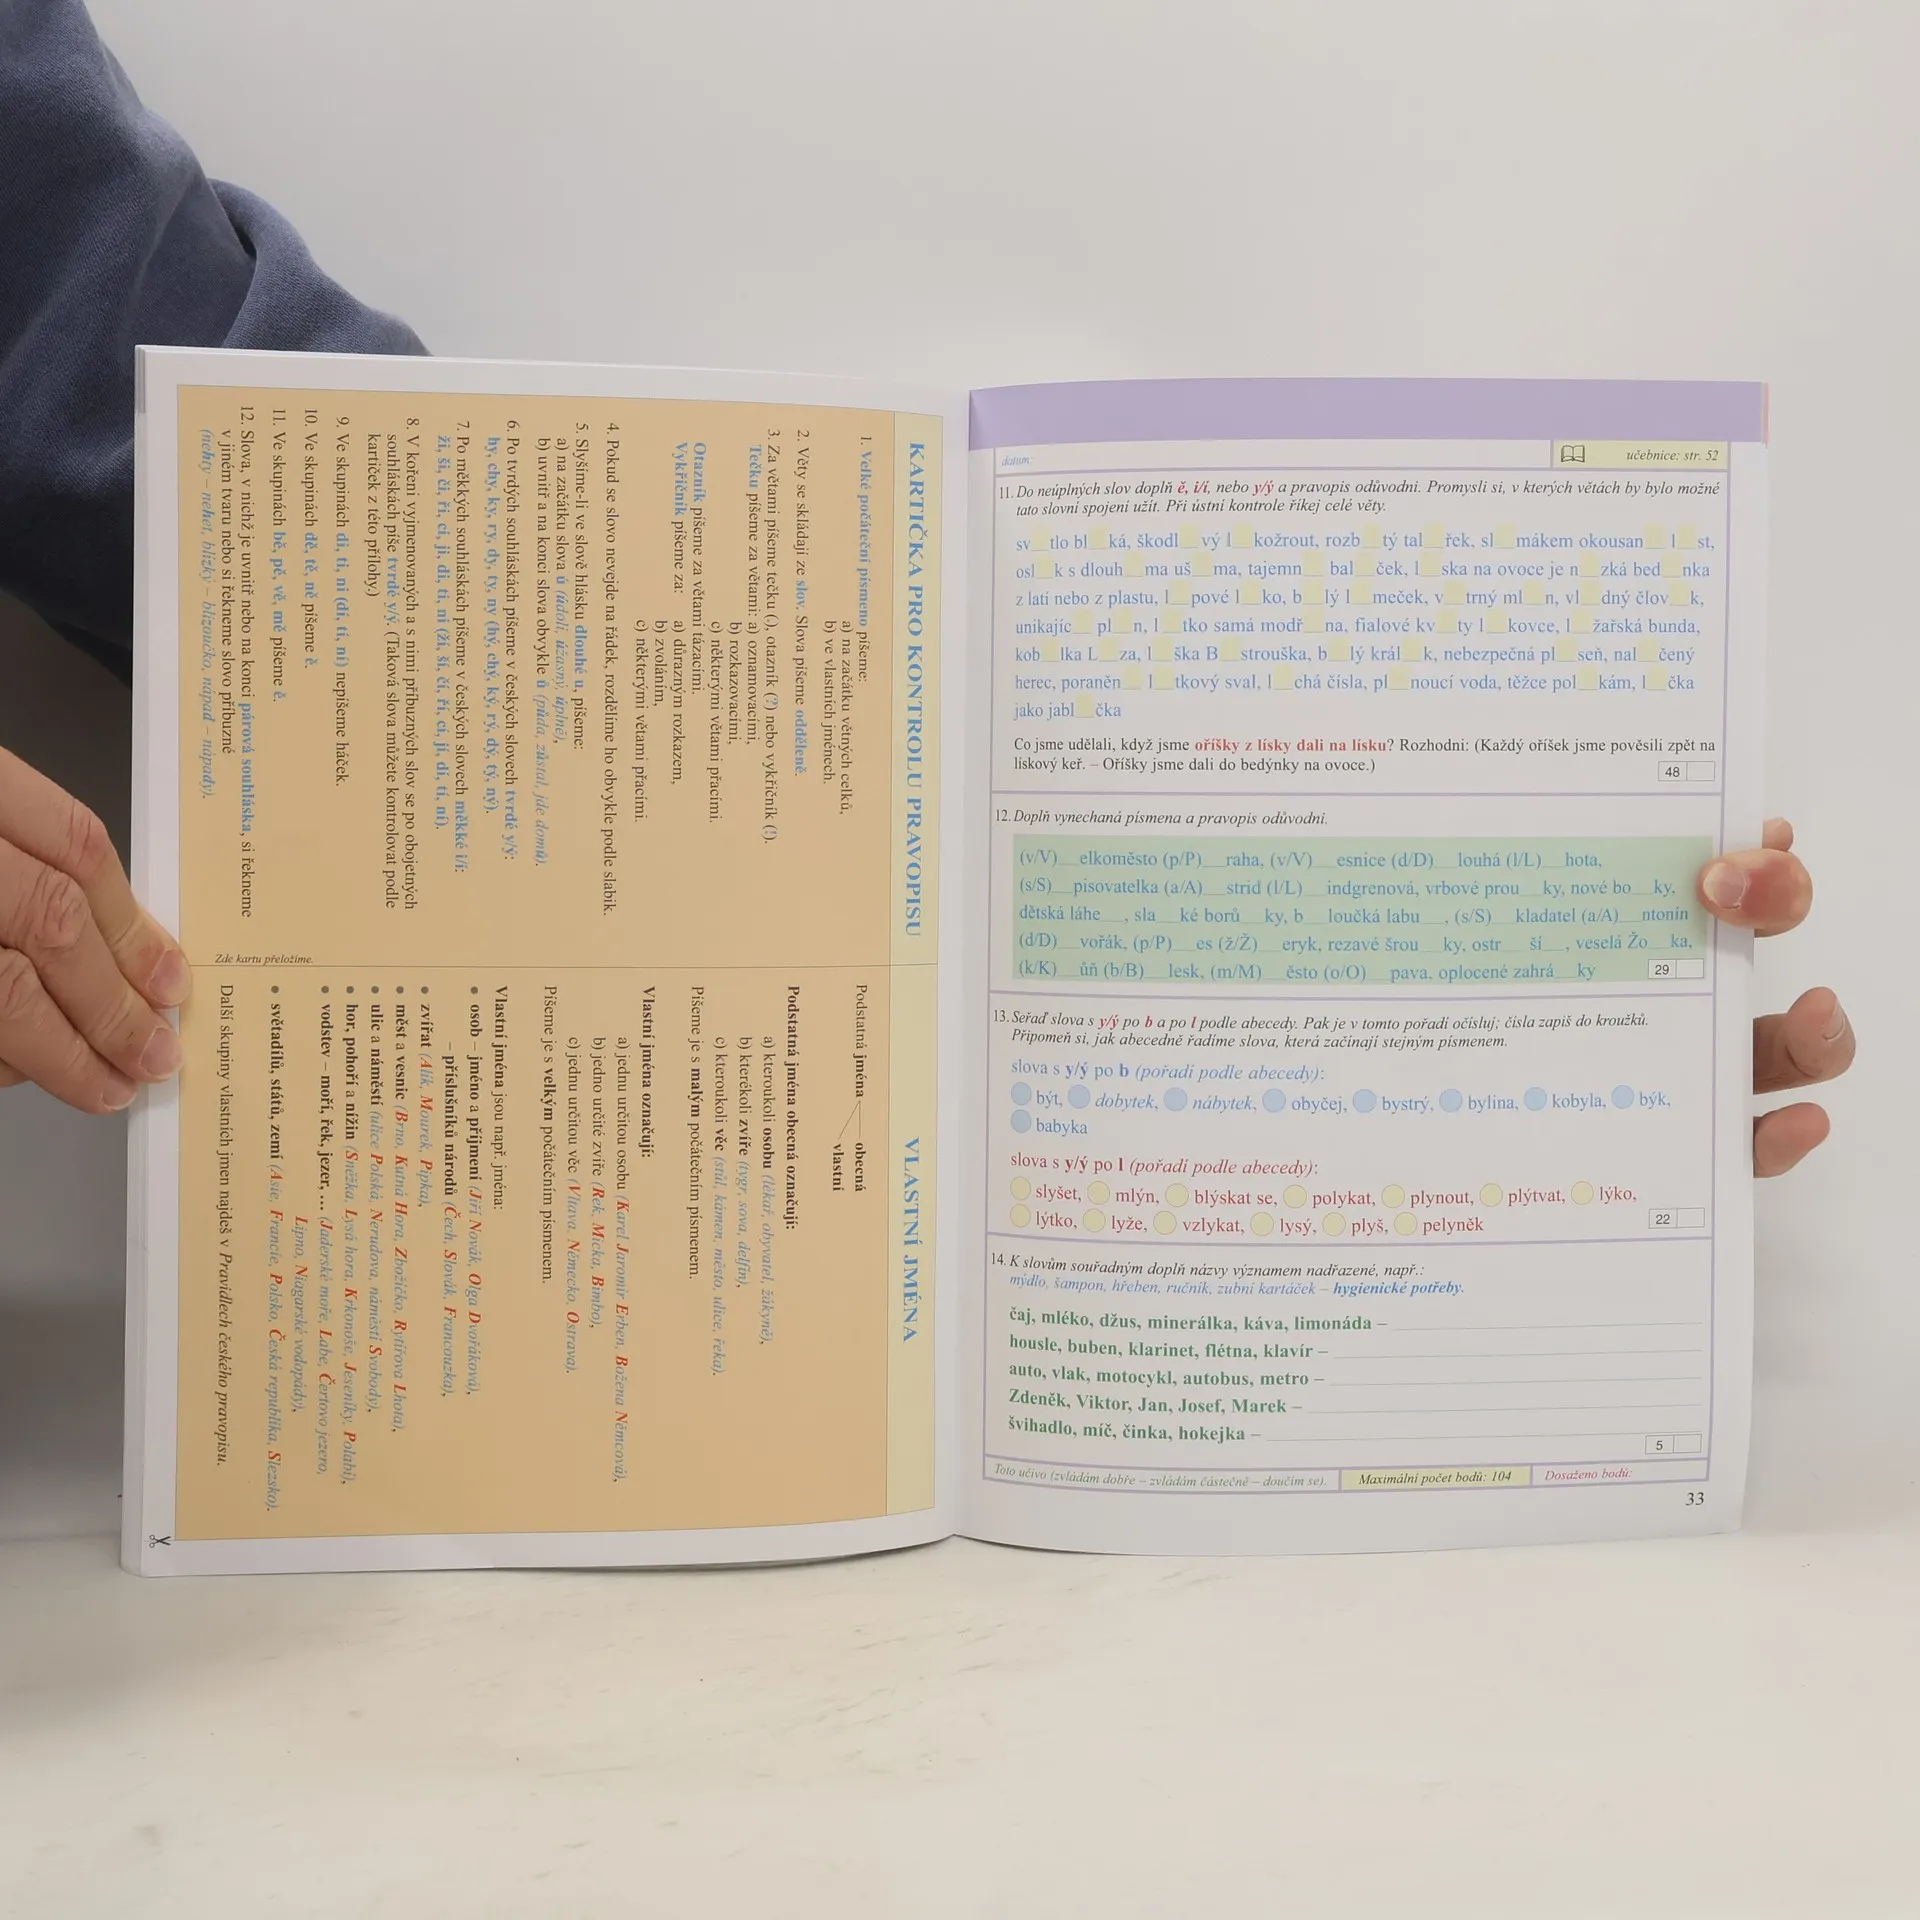 KARTIČKA PRO KONTROLU PRAVOPISU
1. Velké počáteční písmeno píšeme:
a) na začátku větných celků,
b) ve vlastních jménech.
2. Věty se skládají ze slov. Slova píšeme odděleně.
3. Za větami píšeme tečku (.), otazník (?) nebo vykřičník (!).
Tečku píšeme za větami: a) oznamovacími,
b) rozkazovacími,
c) některými větami přacími.
Otazník píšeme za větami tázacími.
Vykřičník píšeme za: a) důrazným rozkazem,
b) zvoláním,
c) některými větami přacími.
4. Pokud se slovo nevejde na řádek, rozdělíme ho obvykle podle slabik.
5. Slyšíme-li ve slově hlásku dlouhé u, píšeme:
a) na začátku slova ú (údolí, úžasný, úplné),
b) uvnitř a na konci slova obvykle ů (půda, zůstal, jde domů).
6. Po tvrdých souhláskách píšeme v českých slovech tvrdé y/ý:
hy, chy, ky, ry, dy, ty, ny (hý, chý, ký, rý, dý, tý, ný).
7. Po měkkých souhláskách píšeme v českých slovech měkké i/í:
ži, ši, či, ři, ci, ji, di, ti, ni (ží, ší, čí, ří, cí, jí, dí, tí, ní).
8. V kořeni vyjmenovaných a s nimi příbuzných slov se po obojetných
souhláskách píše tvrdé y/ý. (Taková slova můžete kontrolovat podle
kartiček z této přílohy.)
9. Ve skupinách di, ti, ni (dí, tí, ní) nepíšeme háček.
10. Ve skupinách dě, tě, ně píšeme ě.
11. Ve skupinách bě, pě, vě, mě píšeme ě.
12. Slova, v nichž je uvnitř nebo na konci párová souhláska, si řekneme
v jiném tvaru nebo si řekneme slovo příbuzné
(nehty – nehet, blízký – blizoučko, nápad – nápady).
Zde kartu přeložíme.
VLASTNÍ JMÉNA
Podstatná jména obecná
vlastní
Podstatná jména obecná označují:
a) kteroukoli osobu (lékař, obyvatel, žákyně),
b) kterékoli zvíře (tygr, sova, delfín),
c) kteroukoli věc (stůl, kámen, město, ulice, řeka).
Píšeme je s malým počátečním písmenem.
Vlastní jména označují:
a) jednu určitou osobu (Karel Jaromír Erben, Božena Němcová),
b) jedno určité zvíře (Rek, Micka, Bimbo),
c) jednu určitou věc (Vltava, Německo, Ostrava).
Píšeme je s velkým počátečním písmenem.
Vlastní jména jsou např. jména:
• osob – jméno a příjmení (Jiří Novák, Olga Dvořáková),
– příslušníků národů (Čech, Slovák, Francouzka),
• zvířat (Alík, Mourek, Pipka),
• měst a vesnic (Brno, Kutná Hora, Zbožíčko, Rytířova Lhota),
• ulic a náměstí (ulice Polská, Nerudova, náměstí Svobody),
• hor, pohoří a nížin (Sněžka, Lysá hora, Krkonoše, Jeseníky, Polabí),
• vodstev – moří, řek, jezer, ... (Jaderské moře, Labe, Čertovo jezero,
Lipno, Niagarské vodopády),
• světadílů, států, zemí (Asie, Francie, Polsko, Česká republika, Slezsko).
Další skupiny vlastních jmen najdeš v Pravidlech českého pravopisu.
datum:
učebnice: str. 52
11. Do neúplných slov doplň ě, i/í, nebo y/ý a pravopis odůvodni. Promysli si, v kterých větách by bylo možné
tato slovní spojení užít. Při ústní kontrole říkej celé věty.
sv__tlo bl__ká, škodl__vý l__kožrout, rozb__tý tal__řek, sl__mákem okousan__ l__st,
osl__k s dlouh__ma uš__ma, tajemn__ bal__ček, l__ska na ovoce je n__zká bed__nka
z latí nebo z plastu, l__pové l__ko, b__lý l__meček, v__trný ml__n, vl__dný člov__k,
unikajíc__ pl__n, l__tko samá modř__na, fialové kv__ty l__kovce, l__žařská bunda,
kob__lka L__za, l__ška B__strouška, b__lý král__k, nebezpečná pl__seň, nal__čený
herec, poraněn__ l__tkový sval, l__chá čísla, pl__noucí voda, těžce pol__kám, l__čka
jako jabl__čka
Co jsme udělali, když jsme oříšky z lísky dali na lísku? Rozhodni: (Každý oříšek jsme pověsili zpět na
lískový keř. – Oříšky jsme dali do bedýnky na ovoce.)
48
12. Doplň vynechaná písmena a pravopis odůvodni.
(v/V)__elkoměsto (p/P)__raha, (v/V)__esnice (d/D)__louhá (l/L)__hota,
(s/S)__pisovatelka (a/A)__strid (l/L)__indgrenová, vrbové prou__ky, nové bo__ky,
dětská láhe__, sla__ké borů__ky, b__loučká labu__, (s/S)__kladatel (a/A)__ntonín
(d/D)__vořák, (p/P)__es (ž/Ž)__eryk, rezavé šrou__ky, ostr__ ší__, veselá Žo__ka,
(k/K)__ůň (b/B)__lesk, (m/M)__ěsto (o/O)__pava, oplocené zahrá__ky
29
13. Seřaď slova s y/ý po b a po l podle abecedy. Pak je v tomto pořadí očísluj; čísla zapiš do kroužků.
Připomeň si, jak abecedně řadíme slova, která začínají stejným písmenem.
slova s y/ý po b (pořadí podle abecedy):
být, dobytek, nábytek, obyčej, bystrý, bylina, kobyla, býk,
babyka
slova s y/ý po l (pořadí podle abecedy):
slyšet, mlýn, blýskat se, polykat, plynout, plýtvat, lýko,
lýtko, lyže, vzlykat, lysý, plyš, pelyněk
22
14. K slovům souřadným doplň názvy významem nadřazené, např.:
mýdlo, šampon, hřeben, ručník, zubní kartáček – hygienické potřeby.
čaj, mléko, džus, minerálka, káva, limonáda –
housle, buben, klarinet, flétna, klavír –
auto, vlak, motocykl, autobus, metro –
Zdeněk, Viktor, Jan, Josef, Marek –
švihadlo, míč, činka, hokejka –
5
Toto učivo (zvládám dobře – zvládám částečně – doučím se).
Maximální počet bodů: 104
Dosaženo bodů:
33